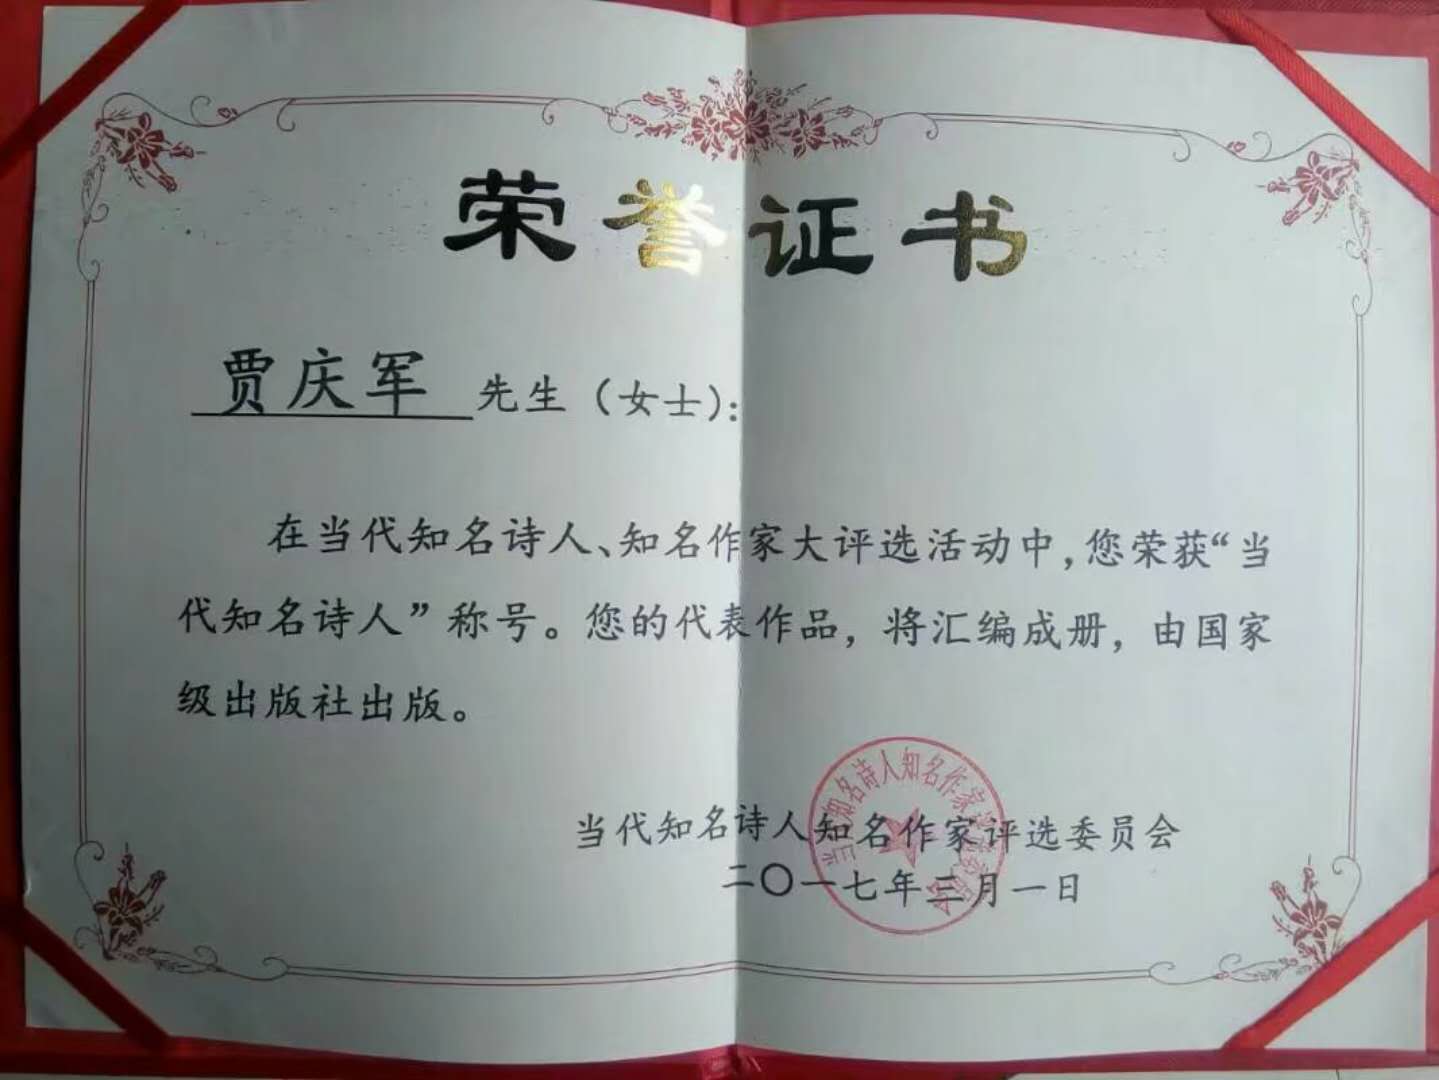 荣誉证书
贾庆军 先生（女士）：
在当代知名诗人、知名作家大评选活动中，您荣获“当
代知名诗人”称号。您的代表作品，将汇编成册，由国家
级出版社出版。
当代知名诗人知名作家评选委员会
二〇一七年三月一日